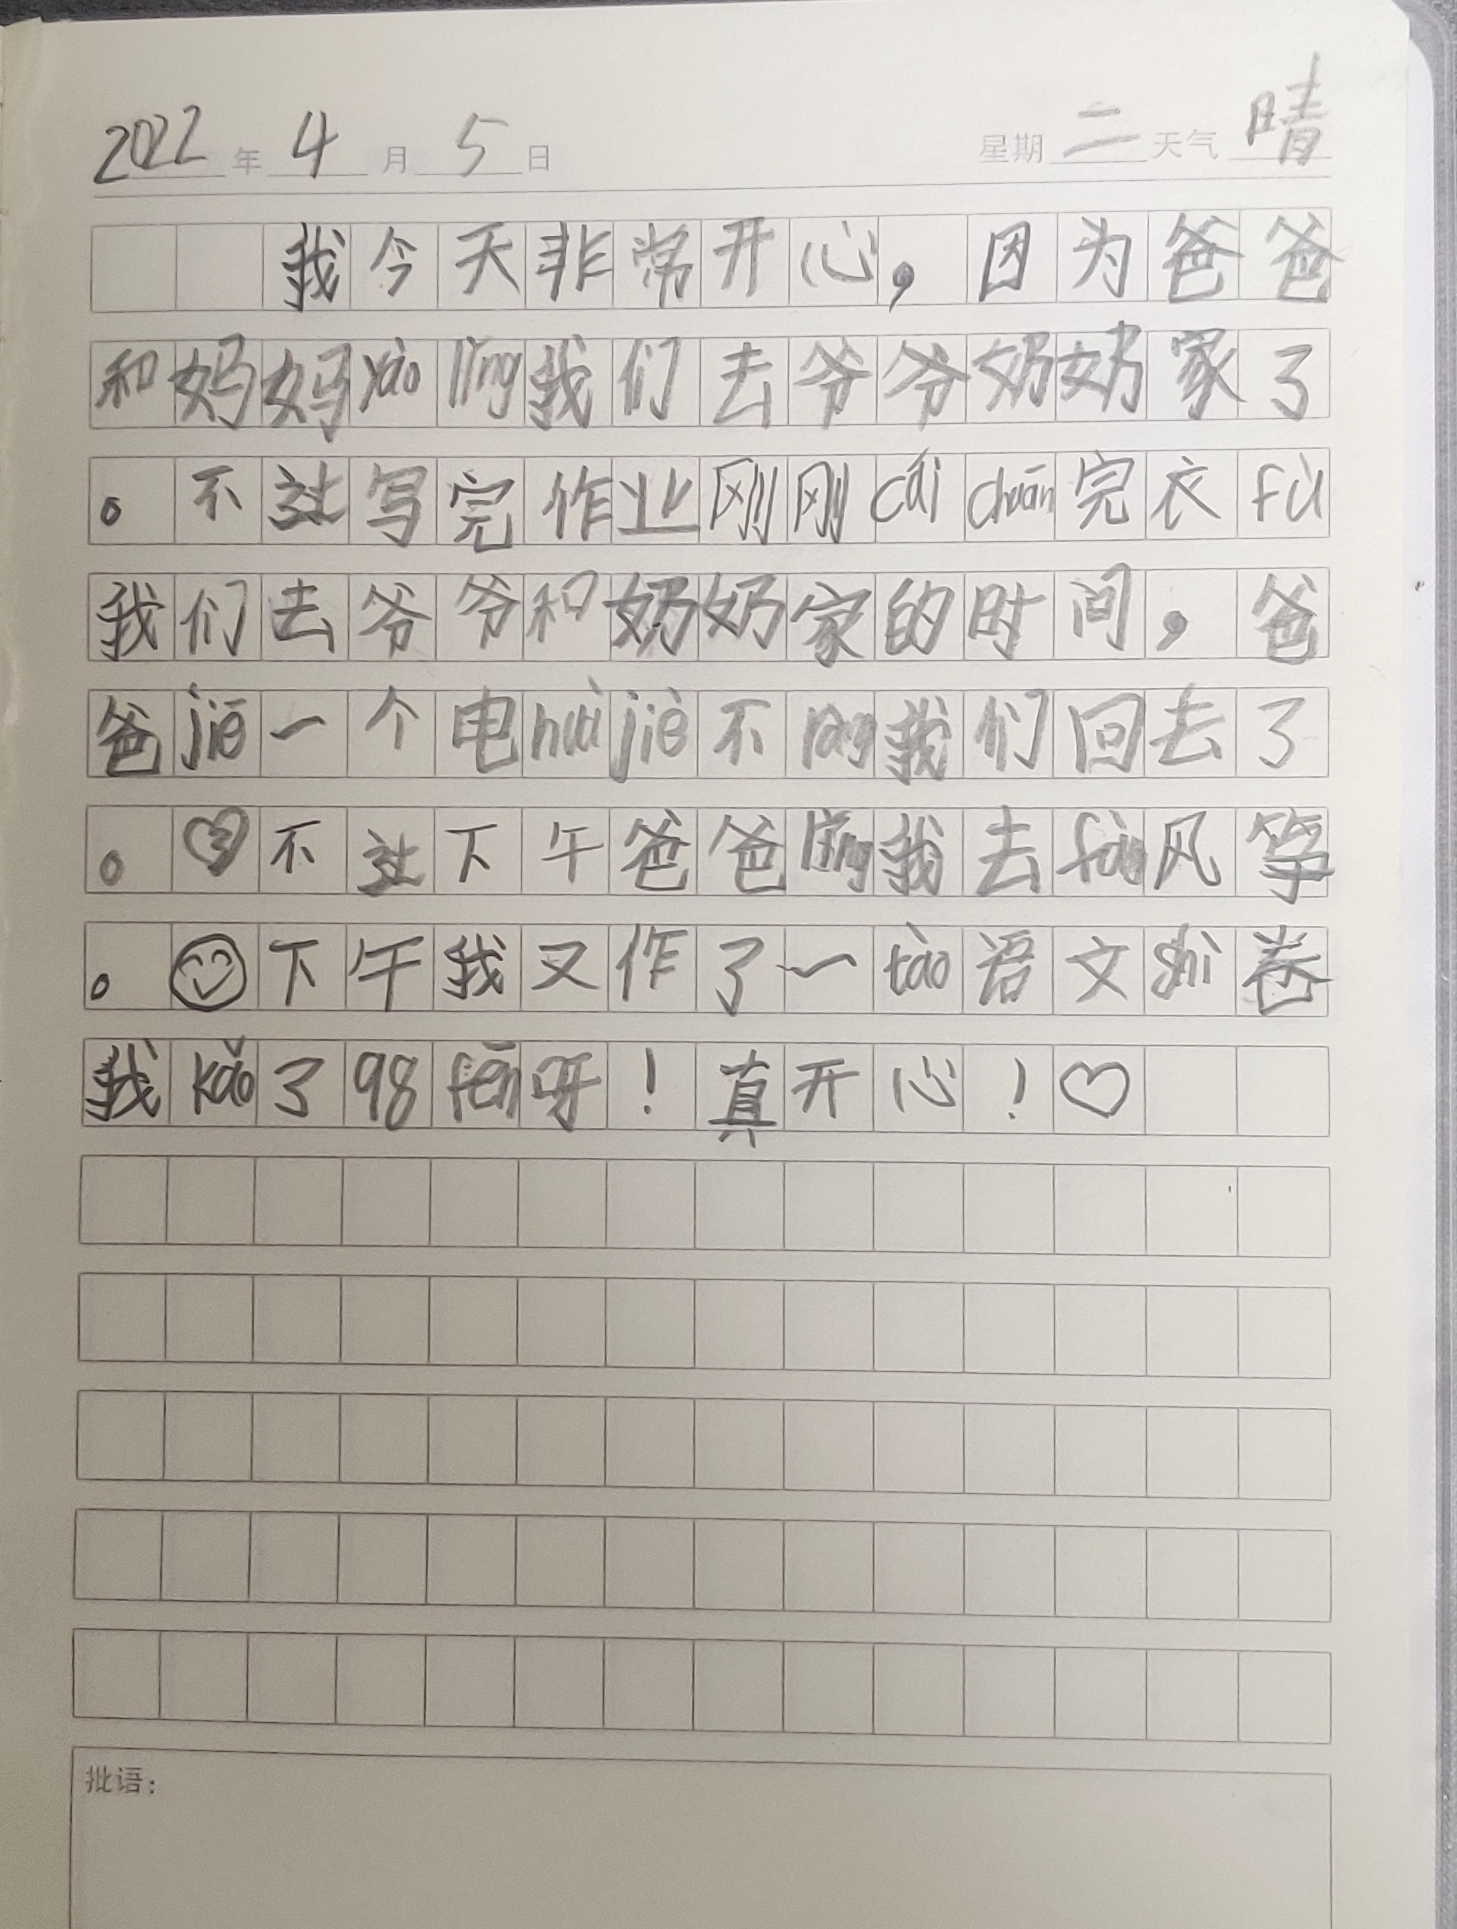 2022年4月5日 星期二天气晴
我今天非常开心，因为爸爸
和妈妈yào lǐng我们去爷爷奶奶家了
。不过写完作业刚刚cái chuān完衣fú
我们去爷爷和奶奶家的时间，爸
爸jiē一个电huà jiē不ràng我们回去了
。不过下午爸爸lǐng我去fàng风筝
。下午我又作了一tào语文shì卷
我kǎo了98fēn呀！真开心！
批语：